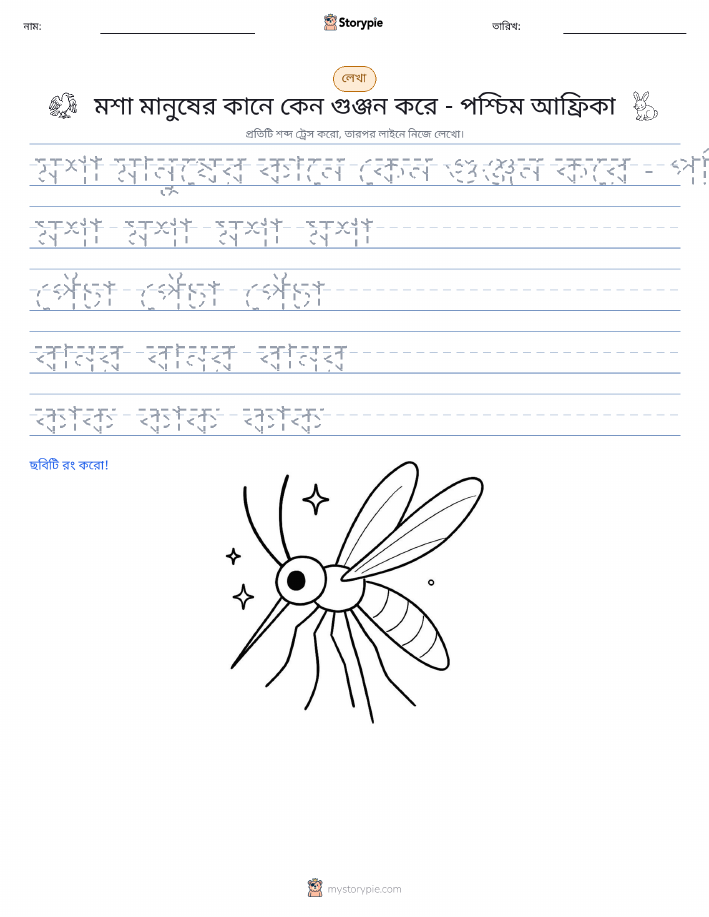 নাম:
Storypie
তারিখ:
লেখা
মশা মানুষের কানে কেন গুঞ্জন করে - পশ্চিম আফ্রিকা
প্রতিটি শব্দ ট্রেস করো, তারপর লাইনে নিজে লেখো।
মশা মানুষের কানে কেন গুঞ্জন করে -
মশা মশা মশা মশা
পেঁচা পেঁচা পেঁচা
বানর বানর বানর
কাক কাক কাক
ছবিটি রং করো!
mystorypie.com